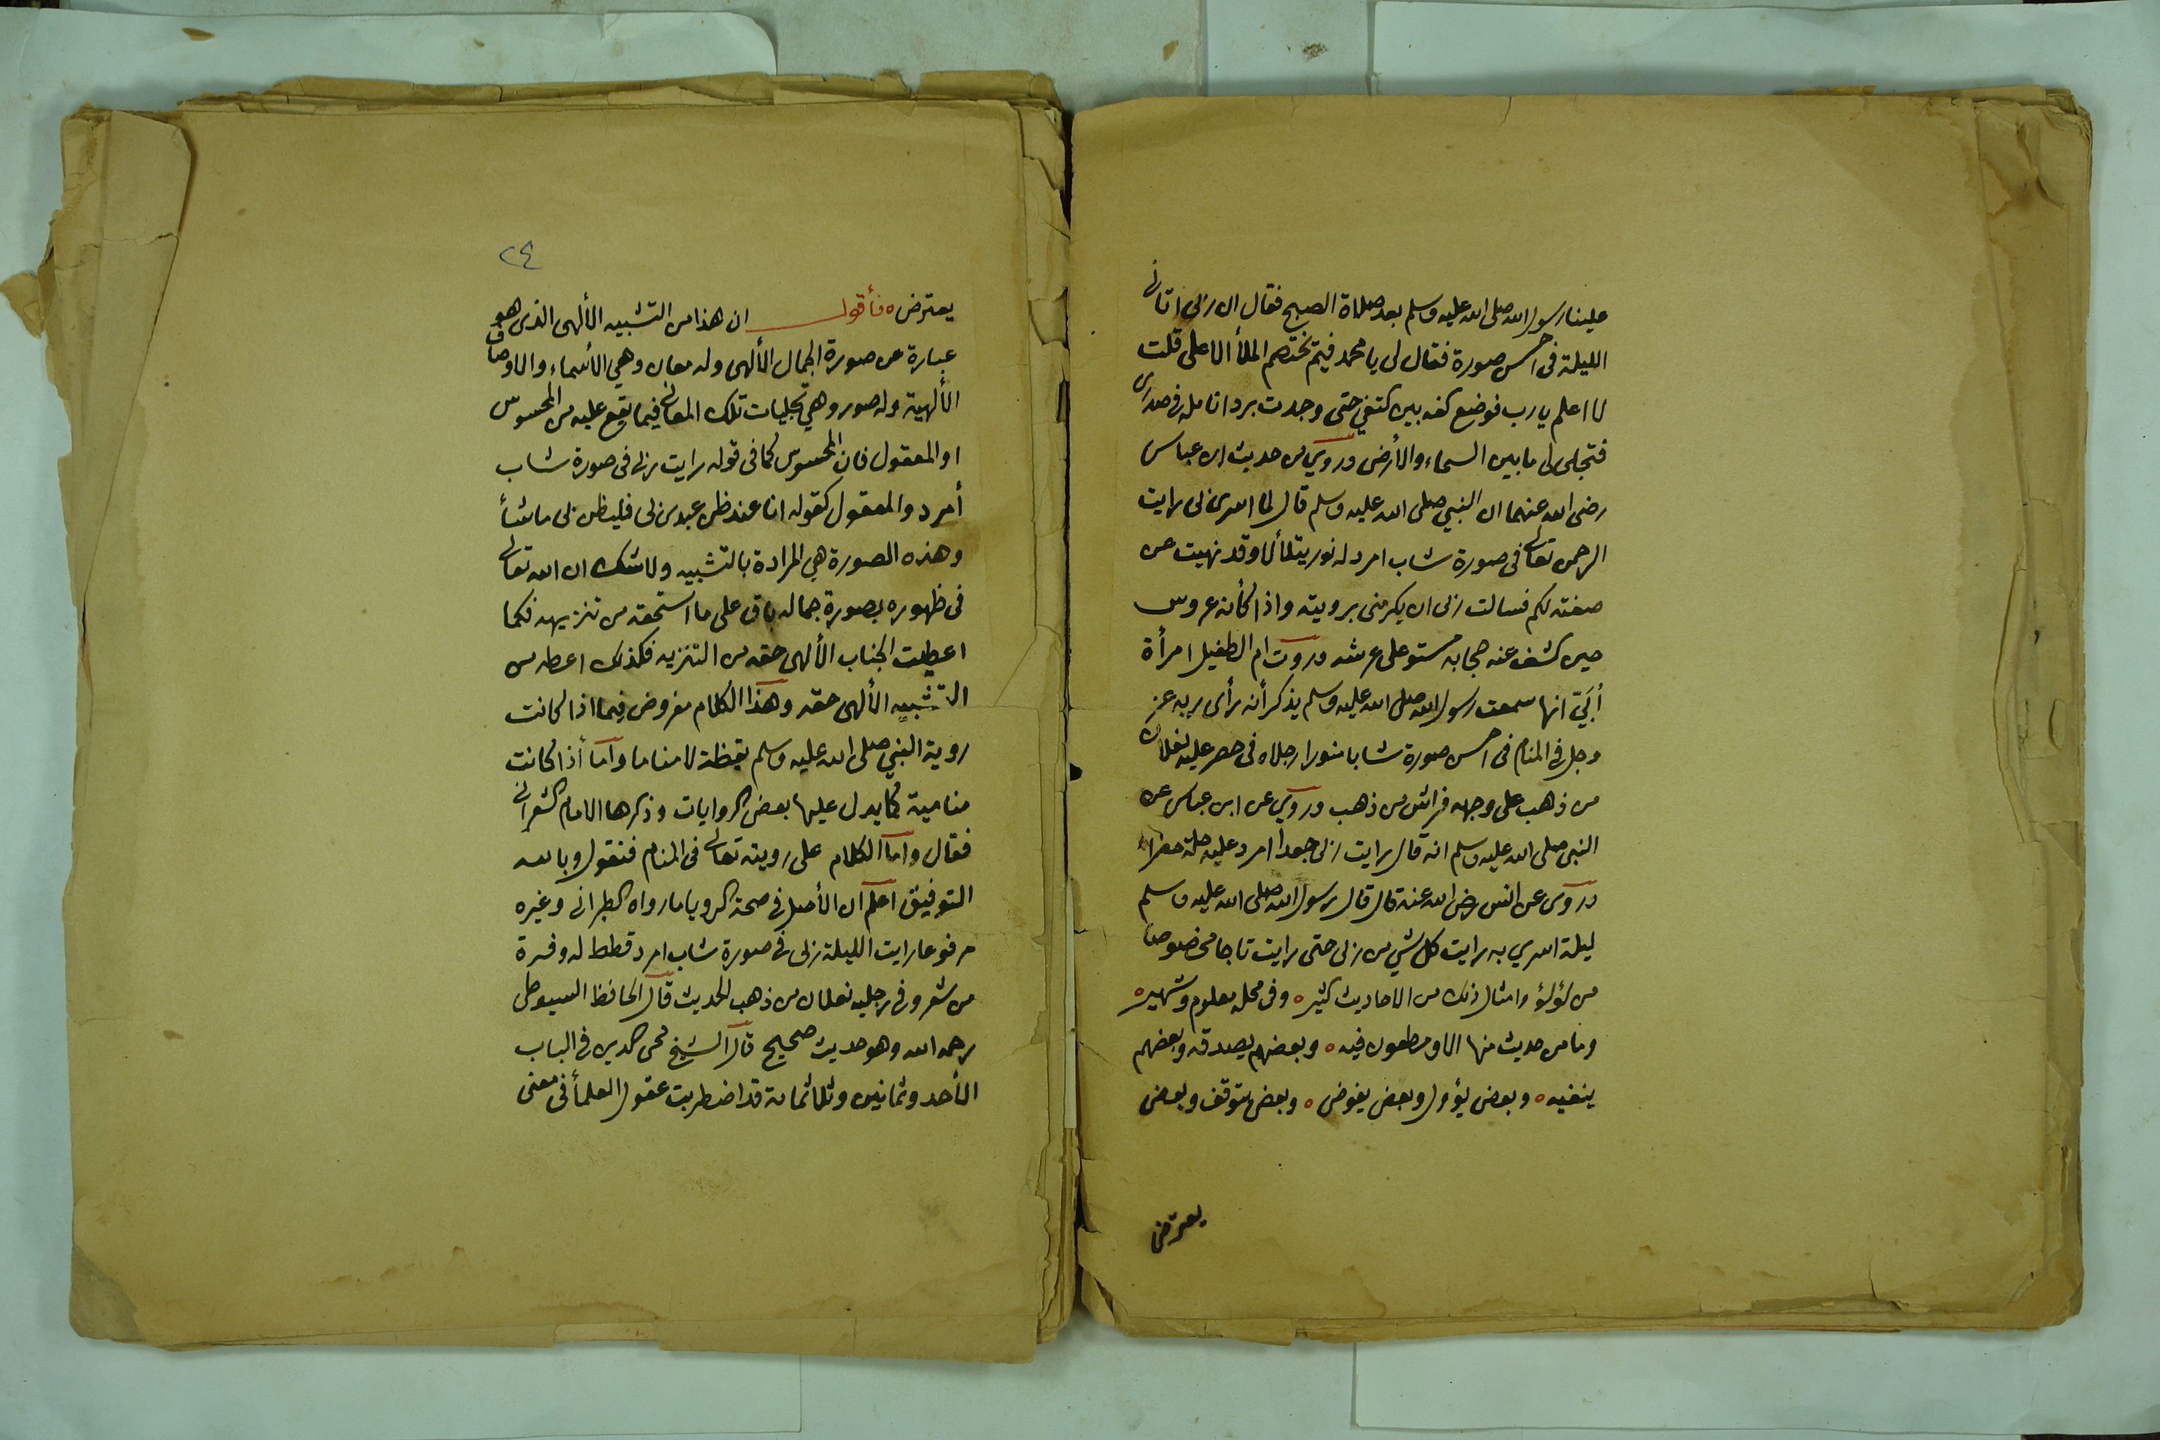 علينا رسول الله صلى الله عليه وسلم بعد صلاة الصبح فقال ان ربى اتانى
الليلة فى احسن صورة فقال لى يا محمد فيم تختصم الملأ الاعلى قلت
لا اعلم يا رب فوضع كفه بين كتفي حتى وجدت برد انامله فى صدرى
فتجلى لى ما بين السماء والأرض وروي من حديث ابن عباس
رضى الله عنهما ان النبي صلى الله عليه وسلم قال لما اسرى بى رايت
الرحمن تعالى فى صورة شاب امرد له نور يتلألأ وقد نهيت عن
صفته لكم فسالت ربى ان يكرمنى برويته واذا كأنه عروس
حين كشف عنه حجابه مستو على عرشه وروت ام الطفيل امرأة
أُبَيّ انها سمعت رسول الله صلى الله عليه وسلم يذكر أنه رأى ربه عز
وجل في المنام فى احسن صورة شابا منورا رجلاه فى حصر عليه نعلان
من ذهب على وجهه فراش من ذهب وروي عن ابن عباس عن
النبى صلى الله عليه وسلم انه قال رايت ربى جعدا امرد عليه حلة
وروى عن انس رضى الله عنه قال قال رسول الله صلى الله عليه وسلم
ليلة اسري به رايت كل شي من ربى حتى رايت تاجا مخصوصا
من لؤلؤ وامثال ذلك من الاحاديث كثيره وفى محله معلوم وشهيره
وما من حديث منها الا ومطعون فيه ه وبعضهم يصدقه وبعضهم
ينفيه ه وبعض يؤول وبعض يفوض ه وبعض يتوقف وبعض
يعترض
٢٤
يعترض ه فأقول ان هذا من التشبيه الألهى الذى هو
عبارة عن صورة الجمال الألهى وله معان وهي الأسماء والاوصاف
الألهية وله صور وهي تجليات تلك المعانى فيما يقع عليه من المحسوس
او المعقول فان المحسوس كما فى قوله رايت ربى فى صورة شاب
أمرد والمعقول كقوله انا عند ظن عبدى بى فليظن بى ما شأ
وهذه الصورة هي المرادة بالتشبيه ولا شك ان الله تعالى
فى ظهوره بصورة جماله باق على ما استحقه من تنزيهه فكما
اعطيت الجناب الألهى حقه من التنزيه فكذلك اعطه من
التشبيه الألهى حقه وهذا الكلام مفروض فيما اذا كانت
روية النبي صلى الله عليه وسلم يقظة لا مناما واما أذا كانت
منامية كما يدل عليها بعض الروايات وذكرها الامام الشعرانى
فقال واما الكلام على رويته تعالى فى المنام فنقول وبالله
التوفيق اعلم ان الأصل في صحة الرويا ما رواه الطبرانى وغيره
مرفوعا رايت الليلة ربى في صورة شاب امرد قطط له وفرة
من شعر وفى رجليه نعلان من ذهب الحديث قال الحافظ السيوطى
رحمه الله وهو حديث صحيح قال الشيخ محى الدين فى الباب
الأحد وثمانين وثلاثمائة قد اضطربت عقول العلمأ فى معنى